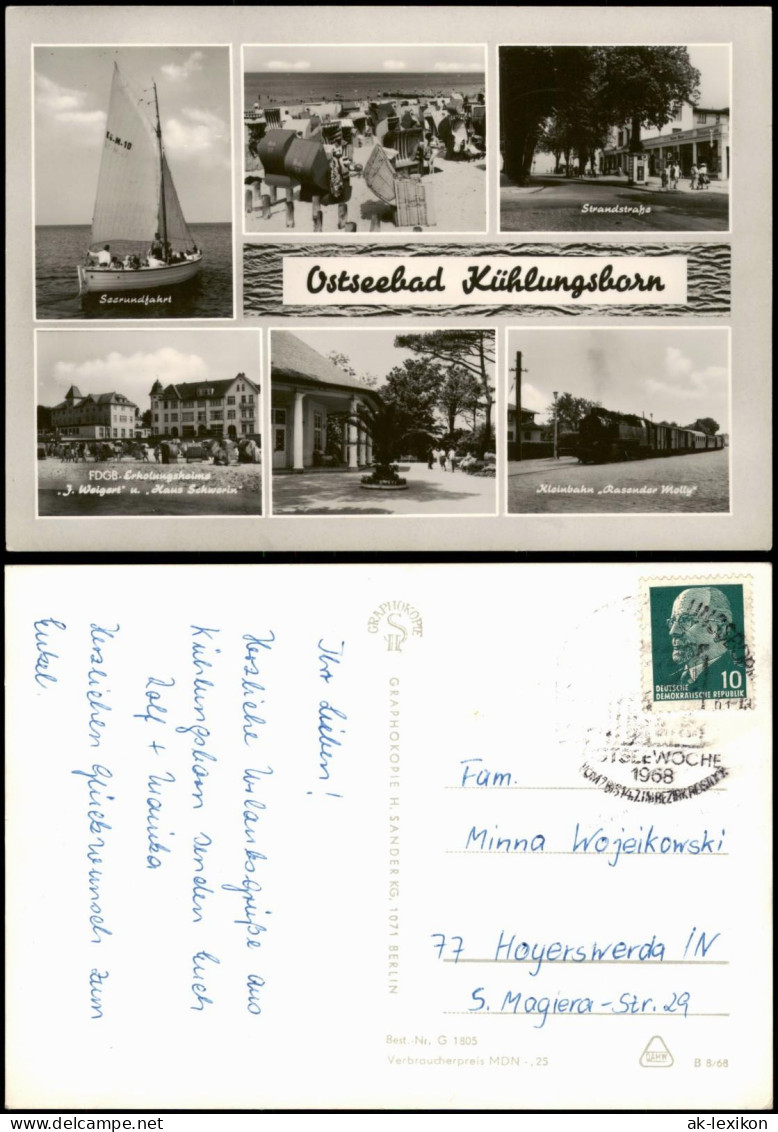 Kü.M.10
Seerundfahrt
Strandstraße
Ostseebad Kühlungsborn
FDGB-Erholungsheime
„J. Weigert" u. „Haus Schwerin"
Kleinbahn „Rasender Molly"
Ihr Lieben!
Herzliche Urlaubsgrüße aus
Kühlungsborn senden Euch
Rolf + Marika
Herzlichen Glückwunsch zum
Enkel.
GRAPHOKOPIE
GRAPHOKOPIE H. SANDER KG, 1071 BERLIN
10
DEUTSCHE
DEMOKRATISCHE REPUBLIK
OSTSEEWOCHE
1968
Fam.
Minna Wojeikowski
77 Hoyerswerda IN
S. Magiera-Str. 29
Best.-Nr. G 1805
Verbraucherpreis MDN -,25
B 8/68
ak-lexikon